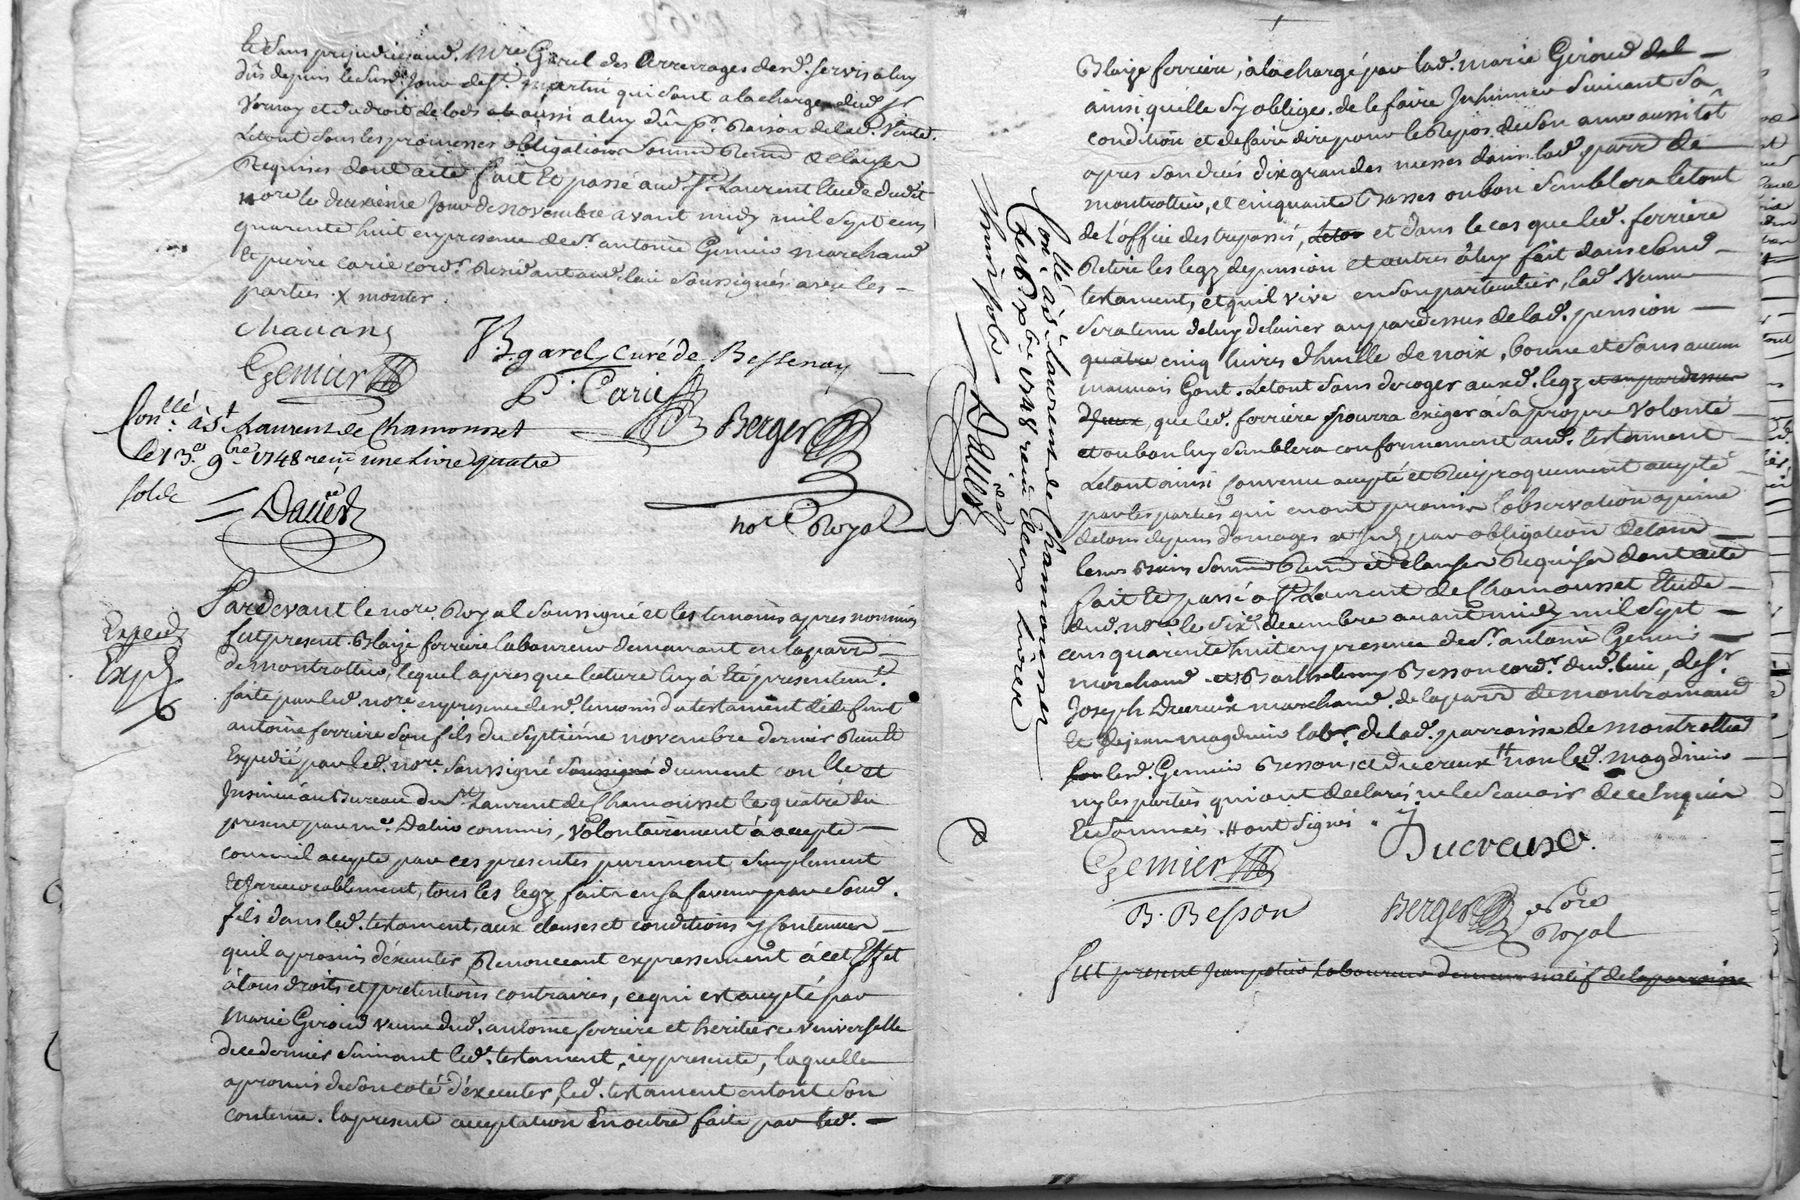 Et sans prejudice aud. Mre Garel des Arrerages desd. servis a luy
dûs depuis led. jour de St. martin qui sont a la charge dud. Sr.
Vernay et du droit de lods aussi a luy dû pr. Raison de lad. Vente.
Letout sous les promesses obligations soumon Renon & clauses
Requises dont acte fait Et passé aud. St. Laurent Etude dudit
nore le deuxième Jour de novembre avant midy mil sept cens
quarente huit en presence de sr. antoine Gemier marchand
Et pierre carie cordr. Residant aud. lieu soussignés avec les
parties. X monter.
Chavans
V. B. garel Curé de Bessenay
Gemier
P. Carie
Berger
nore Royal
Conllé à St Laurent de Chamousset
le 13e 9bre 1748 reçu une Livre quatre
sols
Daliers
Exped
Exp
Pardevant le nore. Royal soussigné et les temoins apres nommés
fut present Blaize ferriere laboureur demeurant en la parr.
de montrottier, lequel apres que lecture luy à Eté presentemt.
faite par led. nore en presence desd. temoins du testament de defunt
antoine ferriere son fils du septiéme novembre dernier Reçu Et
Expedié par led. nore. soussigné soussigné duement conlle et
Insinué au Bureau du St Laurent de Chamousset le quatre du
present par me. Daliers commis, volontairement à accepté
comme il accepte par ces presentes purement simplement
Et Irrevocablement, tous les legz faits en sa faveur par sond.
fils dans led. testament, aux clauses et conditions y contenues
quil a promis d'éxecuter, Renonceant expressement à cet Effet
à tous droits et pretentions contraires, ce qui est accepté par
Marie Giroud veuve dud. antoine ferriere et heritiere universelle
de ce dernier suivant led. testament, icy presente, laquelle
a promis de son coté d'éxecuter led. testament en tout son
contenu. la present acceptation En outre faite par led.
Blaize ferriere, à la charge par lad. marie Giroud
ainsi quelle s'y oblige, de le faire Inhumer suivant sa
condition et de faire dire pour le Repos de son ame aussitôt
apres son decés dix grandes messes dans lad. parr. de
montrottier, et cinquante Basses ou bon semblera le tout
de l'office des trepassés, et dans le cas que led. ferriere
Retire les legz de pension et autres à luy fait dans led.
testament, et quil vive en son particulier, lad. veuve
sera tenue de luy delivrer au pardessus de lad. pension
quatre cinq livres d'huille de noix, bonne et sans aucun
mauvais Gout. Letout sans deroger auxd. legz et au pardessus
d'eux, que led. ferriere pourra exiger à sa propre volonté
et ou bon luy semblera conformement aud. testament
Letout ainsi convenu accepté et Reciproquement accepté
par les parties qui en ont promis l'observation a peine
de tous depens domages et Int. par obligation de tous
leurs Biens soumon Renon et clauses Requises dont acte
fait Et passé à St. Laurent de Chamousset Etude
dud. nore le sixe. decembre avant midy mil sept
cens quarente huit en presence de sr. antoine Gemier
marchand et Barthelemy Besson cordr. dud. lieu, de sr.
Joseph Ducreux marchand. de la parr. de montromand
Et de jean magdinier labr. de lad. parroisse de montrottier
lesd. Gemier Besson, et Ducreux tt non led. magdinier
ny les parties qui ont declaré ne le scavoir de ce Enquis
Et sommés. tt ont signés.
Gemier
Ducreux
B. Besson
Berger nore
Royal
fut present Jean laboureur demeur natif de la parroisse
Conllé à St laurent de Chamousset
le 16e xbre 1748 reçu deux livres
huit sols
Daliers